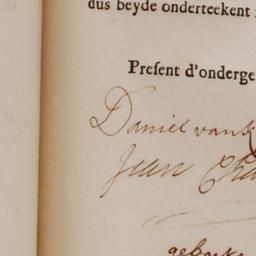 dus beyde onderteekent
Present d'onderge
Daniel van
Jean